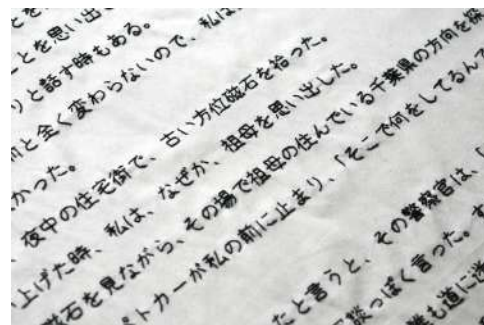 ことを思い出
りと話す時もある。
前と全く変わらないので、私は
かった。
夜中の住宅街で、古い方位磁石を拾った。
い上げた時、私は、なぜか、祖母を思い出した。
磁石を見ながら、その場で祖母の住んでいる千葉県の方向を探
パトカーが私の前に止まり、「そこで何をしてるんで
たと言うと、その警察官は、「
談っぽく言った。す
誰も道に迷